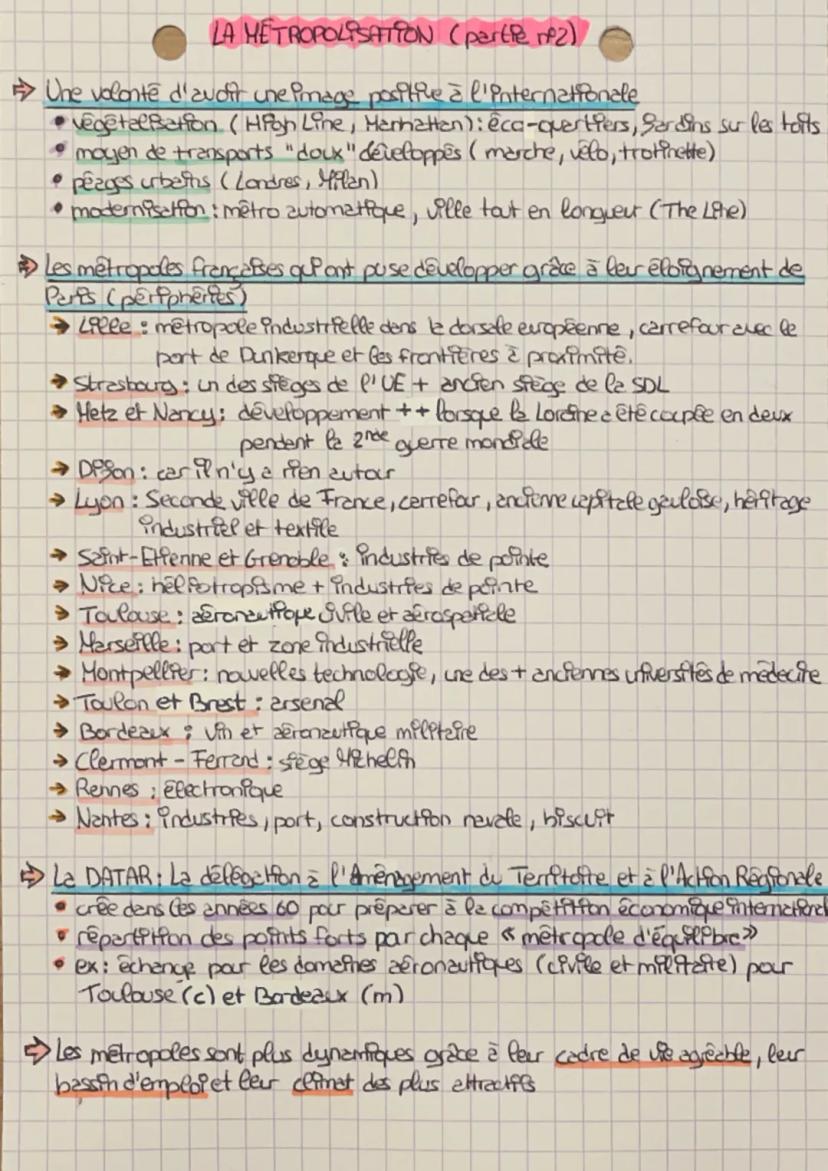 LA MÉTROPOLISATION (partie n°2)
⇒ Une volonté d'avoir une image positive à l'internationale
• végétalisation (High Line, Manhattan) : éco-quartiers, jardins sur les toits
• moyen de transports "doux" développés (marche, vélo, trotinette)
• péages urbains (Londres, Milan)
• modernisation : métro automatique, ville tout en longueur (The Line)
⇒ Les métropoles françaises qui ont pu se développer grâce à leur éloignement de
Paris (périphéries)
→ Lille : métropole industrielle dans la dorsale européenne, carrefour avec le
port de Dunkerque et les frontières à proximité.
→ Strasbourg : un des sièges de l'UE + ancien siège de la SDL
→ Metz et Nancy : développement ++ lorsque la Lordine a été coupée en deux
pendant la 2nde guerre mondiale
→ Dijon : car il n'y a rien autour
→ Lyon : Seconde ville de France, carrefour, ancienne capitale gauloise, héritage
industriel et textile
→ Saint-Etienne et Grenoble : industries de pointe
→ Nice : héliotropisme + industries de pointe
→ Toulouse : aéronautique civile et aérospatiale
→ Marseille : port et zone industrielle
→ Montpellier : nouvelles technologie, une des + anciennes universités de médecine
→ Toulon et Brest : arsenal
→ Bordeaux : vin et aéronautique militaire
→ Clermont - Ferrand : siège Michelin
→ Rennes : électronique
→ Nantes : industries, port, construction navale, biscuit
⇒ La DATAR : La délégation à l'Aménagement du Territoire et à l'Action Régionale
• crée dans les années 60 pour préparer à la compétition économique international
• répartition des points forts par chaque « métropole d'équilibre »
• ex : échange pour les domaines aéronautiques (civile et militaire) pour
Toulouse (c) et Bordeaux (m)
⇒ Les métropoles sont plus dynamiques grâce à leur cadre de vie agréable, leur
bassin d'emploi et leur climat des plus attractifs